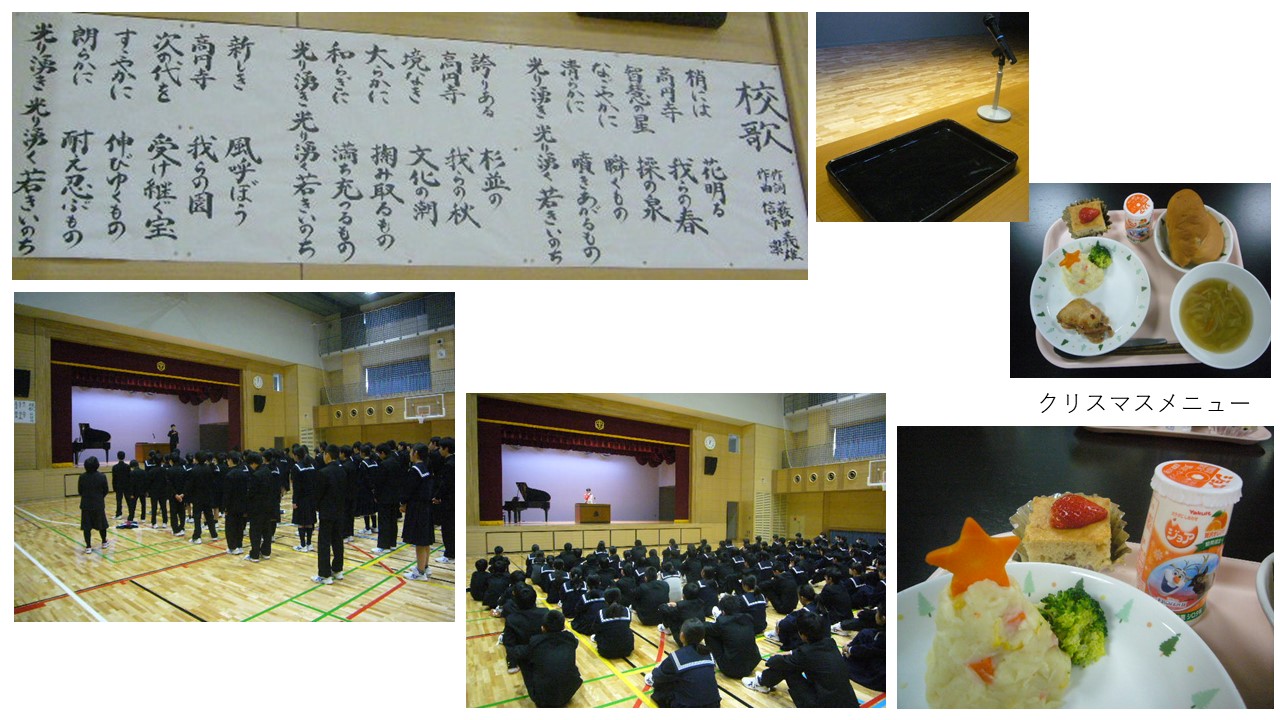 校歌
作詞 薮田義雄
作曲 信時 潔
梢には 花明る
高円寺 我らの春
智慧の星 採の泉
なごやかに 瞬くもの
清らかに 噴きあがるもの
光り湧き 光り湧く 若きいのち
誇りある 杉並の
高円寺 我らの秋
境なき 文化の潮
大らかに 掬み取るもの
和らぎに 満ち充つるもの
光り湧き 光り湧く 若きいのち
新しき 風呼ぼう
高円寺 我らの園
次の代を 受け継ぐ宝
すこやかに 伸びゆくもの
朗らかに 耐え忍ぶもの
光り湧き 光り湧く 若きいのち
クリスマスメニュー
Yakult
ジョア